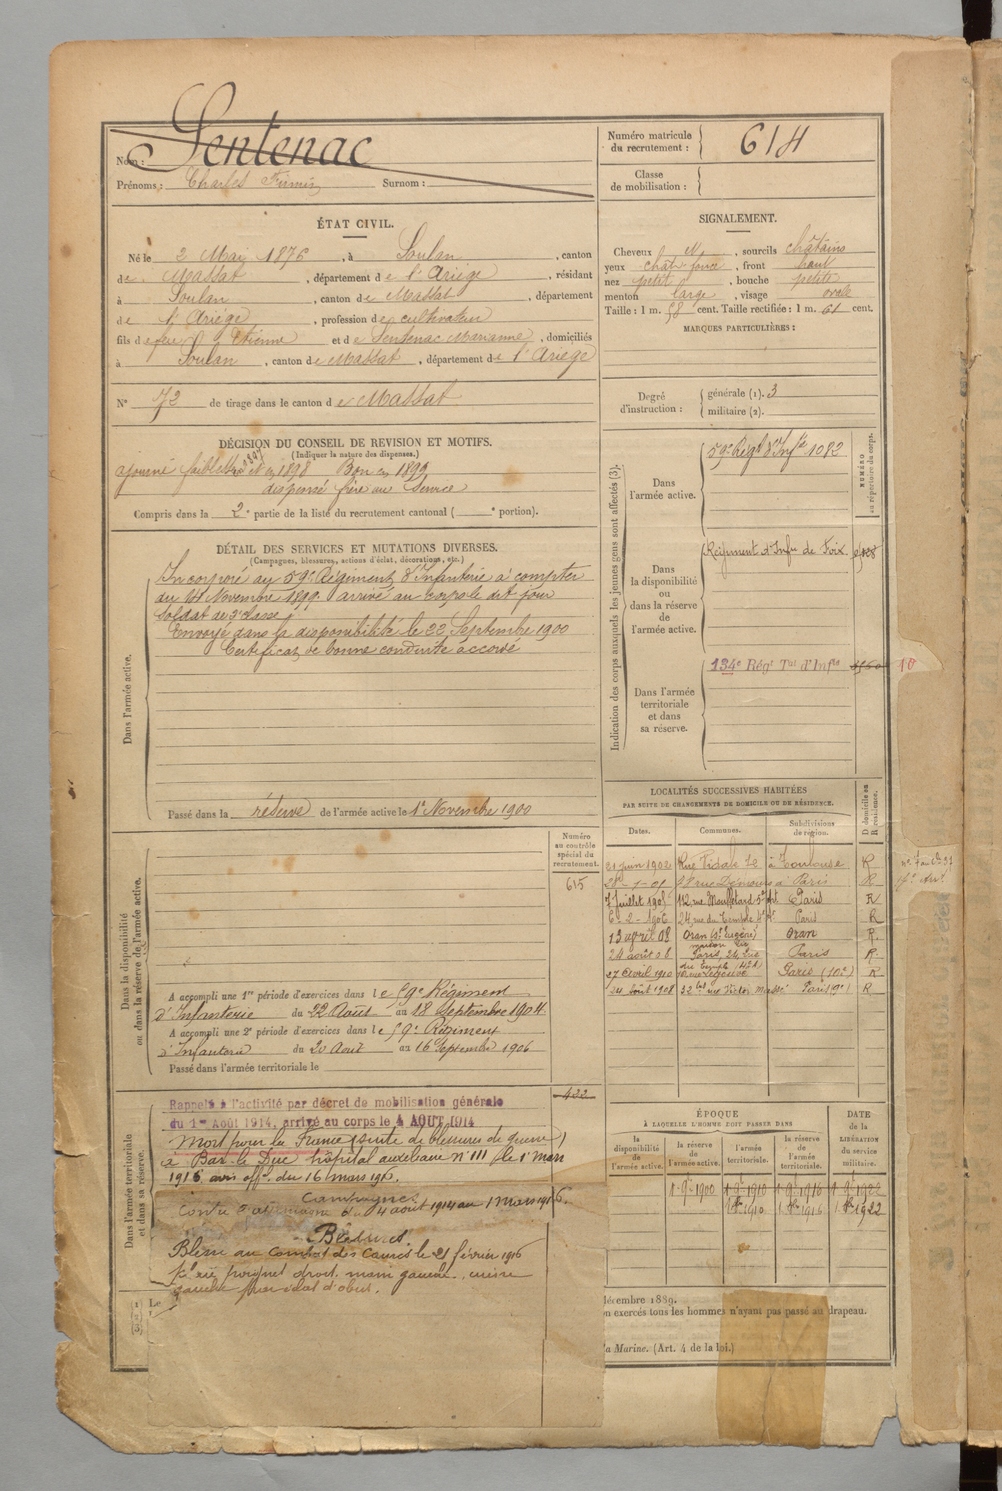 Nom : Sentenac
Prénoms : Charles Firmin Surnom :
Numéro matricule
du recrutement : 614
Classe
de mobilisation :
ÉTAT CIVIL.
Né le 2 Mai 1876, à Soulan, canton
de Massat, département de l'Ariège, résidant
à Soulan, canton de Massat, département
de l'Ariège, profession de cultivateur
fils de feu Etienne et de Sentenac Marianne, domiciliés
à Soulan, canton de Massat, département de l'Ariège
N° 72 de tirage dans le canton de Massat
SIGNALEMENT.
Cheveux N, sourcils châtains
yeux chât. foncé, front haut
nez petit, bouche petite
menton large, visage ovale
Taille : 1 m. 58 cent. Taille rectifiée : 1 m. 61 cent.
MARQUES PARTICULIÈRES :
Degré
d'instruction :
générale (1). 3
militaire (2).
DÉCISION DU CONSEIL DE REVISION ET MOTIFS.
(Indiquer la nature des dispenses.)
ajourné faiblesse 1897 et en 1898 Bon en 1899
dispensé frère au service
Compris dans la 2e partie de la liste du recrutement cantonal ( e portion).
DÉTAIL DES SERVICES ET MUTATIONS DIVERSES.
(Campagnes, blessures, actions d'éclat, décorations, etc.)
Dans l'armée active.
Incorporé au 59e Régiment d'Infanterie à compter
du 14 Novembre 1899 arrivé au corps le dit jour
soldat de 2e classe
Envoyé dans la disponibilité le 22 Septembre 1900
Certificat de bonne conduite accordé
Passé dans la réserve de l'armée active le 1er Novembre 1900
Indication des corps auxquels les jeunes gens sont affectés (3).
NUMÉRO
au répertoire du corps.
Dans
l'armée active.
59e Régt d'Infie 1082
Dans
la disponibilité
ou
dans la réserve
de
l'armée active.
Régiment d'Infie de Foix
Dans l'armée
territoriale
et dans
sa réserve.
134e Régt Tal d'Infie
10
LOCALITÉS SUCCESSIVES HABITÉES
PAR SUITE DE CHANGEMENTS DE DOMICILE OU DE RÉSIDENCE.
Dates. Communes. Subdivisions
de région. D domicile ou
R résidence.
21 juin 1902 Rue Vidale 10 à Toulouse R
58 rue Démours à Paris R
7 Juillet 1905 112 rue Mouffetard 5e Art Paris R
6-2-1906 24 rue du Temple 4e Ar Paris R
13 avril 08 Oran (St Eugène) Oran R.
24 août 08 Paris, 24 rue Paris R
du Temple (4e)
27 Avril 1910 Paris (10e) R
24 Août 1908 32 bis rue Victor Massé Paris (9e) R
Dans la disponibilité
ou dans la réserve de l'armée active.
Numéro
au contrôle
spécial du
recrutement.
615
A accompli une 1re période d'exercices dans le 59e Régiment
d'Infanterie du 22 Août au 18 Septembre 1904.
A accompli une 2e période d'exercices dans le 59e Régiment
d'Infanterie du 20 Août au 16 Septembre 1906
Passé dans l'armée territoriale le
Dans l'armée territoriale
et dans sa réserve.
432
Rappelé à l'activité par décret de mobilisation générale
du 1er Août 1914, arrivé au corps le 4 AOUT 1914
Mort pour la France (suite de blessures de guerre)
à Bar-le-Duc hôpital auxiliaire n° 111 le 1er mars
1916 avis offel du 16 mars 1916.
Campagnes
Contre l'Allemagne du 4 août 1914 au 1 mars 1916.
Blessures.
Blessé au Combat des Caures le 21 février 1916
poignet droit, main gauche, cuisse
gauche par éclat d'obus.
Le
ÉPOQUE
À LAQUELLE L'HOMME DOIT PASSER DANS
DATE
DE LA
LIBÉRATION
du service
militaire.
la
disponibilité
de
l'armée active.
la réserve
de
l'armée active.
l'armée
territoriale.
la réserve
de
l'armée
territoriale.
1 9bre 1900 1 9bre 1910 1 9bre 1916 1 9bre 1922
1 8bre 1910 1 8bre 1916 1 8bre 1922
décembre 1889.
n exercés tous les hommes n'ayant pas passé au drapeau.
la Marine. (Art. 4 de la loi.)